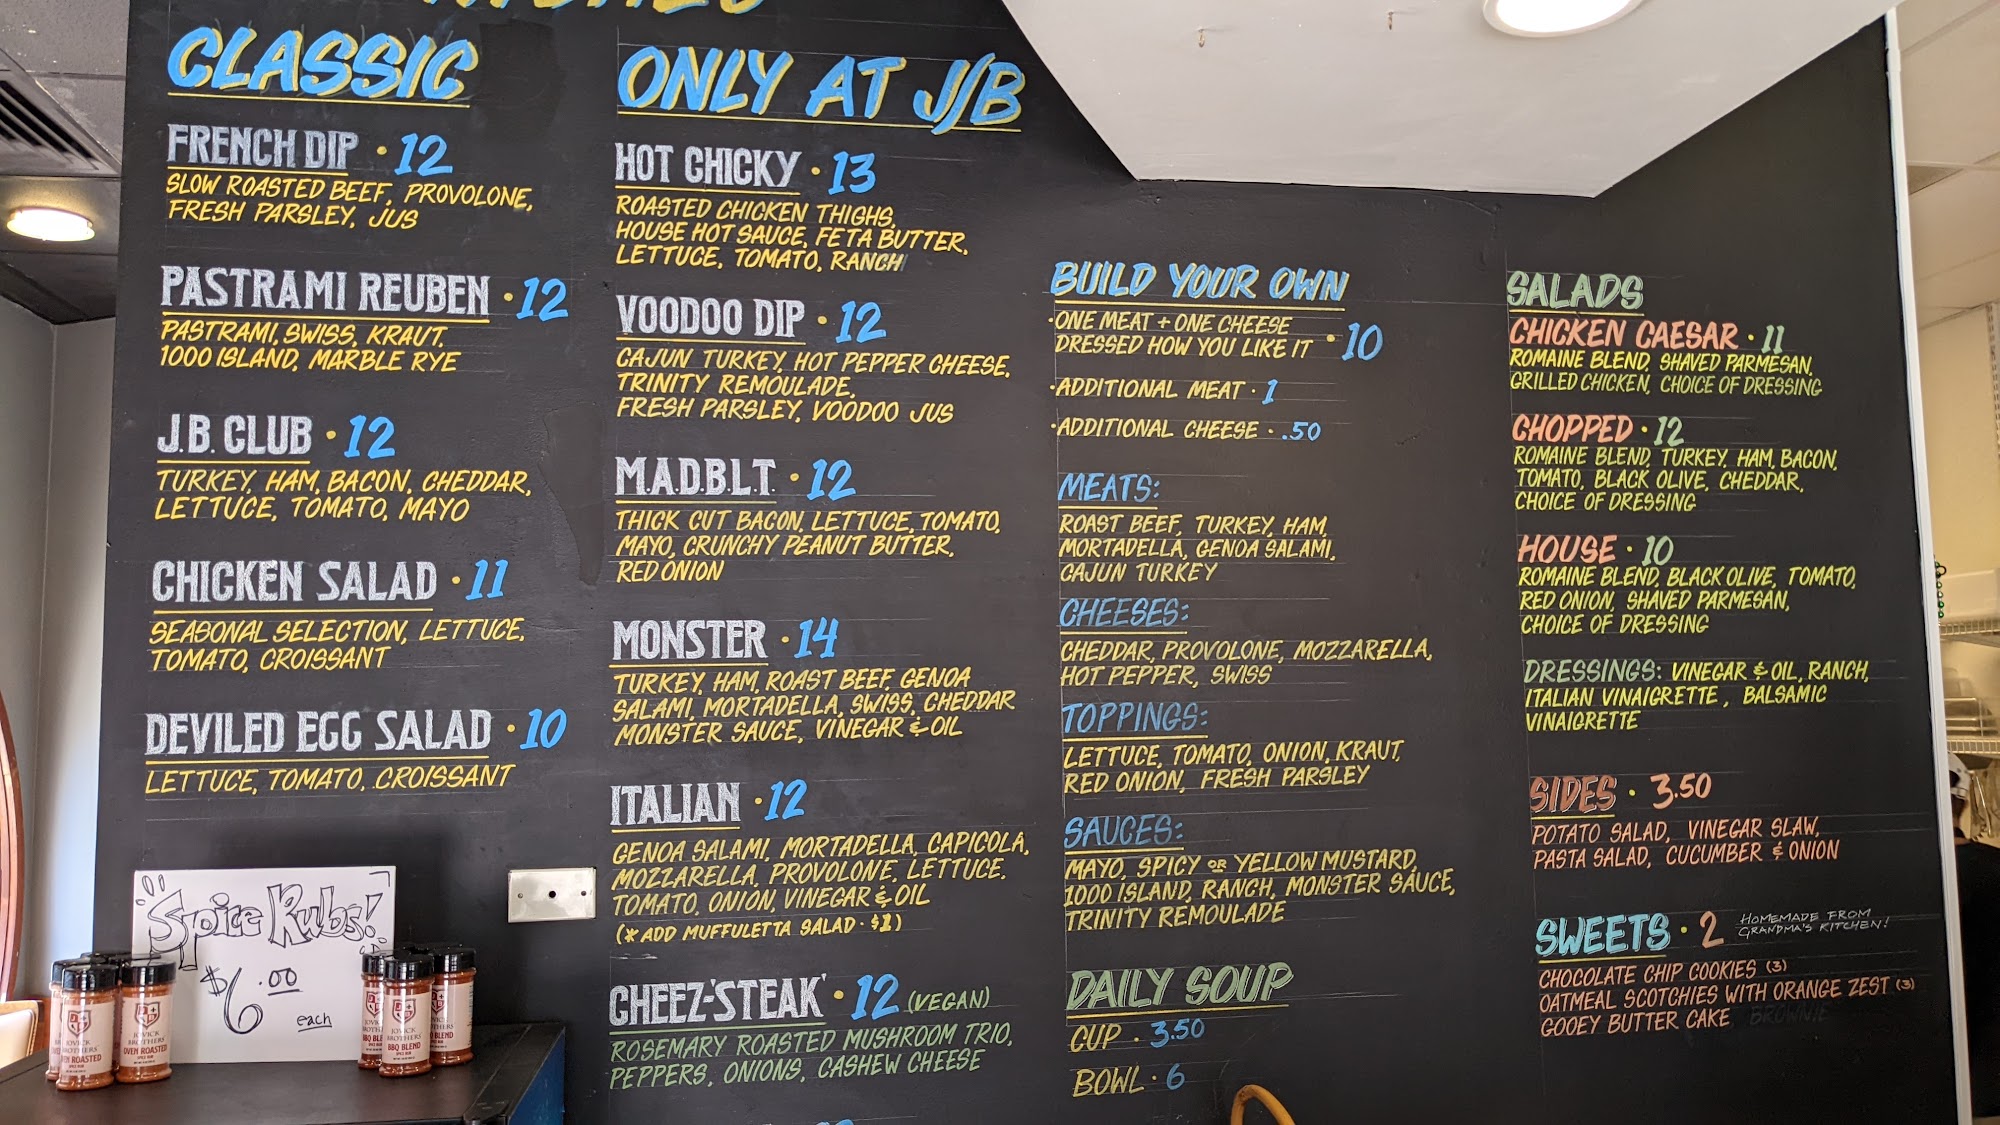 CLASSIC
FRENCH DIP · 12
SLOW ROASTED BEEF, PROVOLONE,
FRESH PARSLEY, JUS
PASTRAMI REUBEN · 12
PASTRAMI, SWISS, KRAUT,
1000 ISLAND, MARBLE RYE
J.B. CLUB · 12
TURKEY, HAM, BACON, CHEDDAR,
LETTUCE, TOMATO, MAYO
CHICKEN SALAD · 11
SEASONAL SELECTION, LETTUCE,
TOMATO, CROISSANT
DEVILED EGG SALAD · 10
LETTUCE, TOMATO, CROISSANT
ONLY AT J/B
HOT CHICKY · 13
ROASTED CHICKEN THIGHS,
HOUSE HOT SAUCE, FETA BUTTER,
LETTUCE, TOMATO, RANCH
VOODOO DIP · 12
CAJUN TURKEY, HOT PEPPER CHEESE,
TRINITY REMOULADE,
FRESH PARSLEY, VOODOO JUS
M.A.D.B.L.T. · 12
THICK CUT BACON, LETTUCE, TOMATO,
MAYO, CRUNCHY PEANUT BUTTER,
RED ONION
MONSTER · 14
TURKEY, HAM, ROAST BEEF, GENOA
SALAMI, MORTADELLA, SWISS, CHEDDAR
MONSTER SAUCE, VINEGAR & OIL
ITALIAN · 12
GENOA SALAMI, MORTADELLA, CAPICOLA,
MOZZARELLA, PROVOLONE, LETTUCE,
TOMATO, ONION, VINEGAR & OIL
(* ADD MUFFULETTA SALAD · $1)
CHEEZ-'STEAK' · 12 (VEGAN)
ROSEMARY ROASTED MUSHROOM TRIO,
PEPPERS, ONIONS, CASHEW CHEESE
BUILD YOUR OWN
· ONE MEAT + ONE CHEESE
DRESSED HOW YOU LIKE IT · 10
· ADDITIONAL MEAT · 1
· ADDITIONAL CHEESE · .50
MEATS:
ROAST BEEF, TURKEY, HAM,
MORTADELLA, GENOA SALAMI,
CAJUN TURKEY
CHEESES:
CHEDDAR, PROVOLONE, MOZZARELLA,
HOT PEPPER, SWISS
TOPPINGS:
LETTUCE, TOMATO, ONION, KRAUT,
RED ONION, FRESH PARSLEY
SAUCES:
MAYO, SPICY OR YELLOW MUSTARD,
1000 ISLAND, RANCH, MONSTER SAUCE,
TRINITY REMOULADE
DAILY SOUP
CUP · 3.50
BOWL · 6
SALADS
CHICKEN CAESAR · 11
ROMAINE BLEND, SHAVED PARMESAN,
GRILLED CHICKEN, CHOICE OF DRESSING
CHOPPED · 12
ROMAINE BLEND, TURKEY, HAM, BACON,
TOMATO, BLACK OLIVE, CHEDDAR,
CHOICE OF DRESSING
HOUSE · 10
ROMAINE BLEND, BLACK OLIVE, TOMATO,
RED ONION, SHAVED PARMESAN,
CHOICE OF DRESSING
DRESSINGS: VINEGAR & OIL, RANCH,
ITALIAN VINAIGRETTE, BALSAMIC
VINAIGRETTE
SIDES · 3.50
POTATO SALAD, VINEGAR SLAW,
PASTA SALAD, CUCUMBER & ONION
SWEETS · 2 HOMEMADE FROM
GRANDMA'S KITCHEN!
CHOCOLATE CHIP COOKIES (3)
OATMEAL SCOTCHIES WITH ORANGE ZEST (3)
GOOEY BUTTER CAKE BROWNIE
Spice Rubs!
$6.00
each
JOVICK
BROTHERS
OVEN ROASTED
SPICE RUB
JOVICK
BROTHERS
BBQ BLEND
SPICE RUB